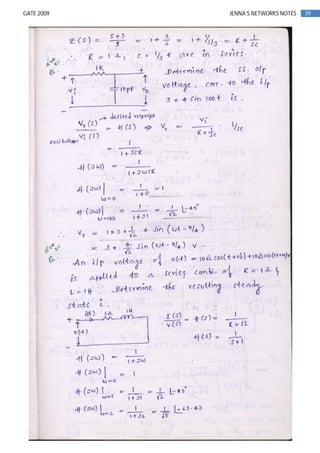 GATE 2009
JENNA'S NETWORKS NOTES 39
Z(S) = S+3/S = 1 + 3/S = 1 + 1/S/3 = R + 1/SC
∴ R = 1Ω, C = 1/3 f are in series.
Q. 1K Determine the SS. o/p
+ Vi 10μf Vo voltage, corr. to the i/p
3 + 4 sin 100t is.
→ desired response
Vo(S)/Vi(S) = H(S) ⇒ Vo = Vi/(R + 1/SC) · 1/SC
excitation
= 1/(1 + SCR)
H(jω) = 1/(1 + jωCR)
H(jω)|ω=0 = 1/(1+0) = 1
H(jω)|ω=100 = 1/(1+j1) = 1/√2 ∟-45°
∴ Vo = 1×3 + 1/√2 · 4 sin(ωt - π/4)
= 3 + 4/√2 sin(ωt - π/4) V.
Q. An i/p voltage of v(t) = 10√2 cos(t+10°) + 10√5 cos(2t+10°)V
is applied to a series comb. of R = 1Ω &
L = 1H Determine the resulting steady
state i.
+ i(t) 1Ω 1H
v(t)
I(S)/V(S) = H(S) = 1/(R + SL)
H(S) = 1/(S+1)
H(jω) = 1/(1+jω)
H(jω)|ω=0 = 1
H(jω)|ω=1 = 1/(1+j1) = 1/√2 ∟-45°
H(jω)|ω=2 = 1/(1+j2) = 1/√5 ∟-63.43